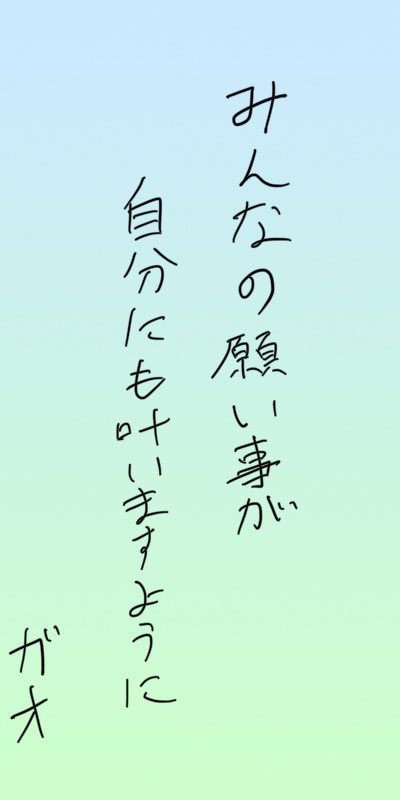 みんなの願い事が
自分にも叶いますように
ガオ